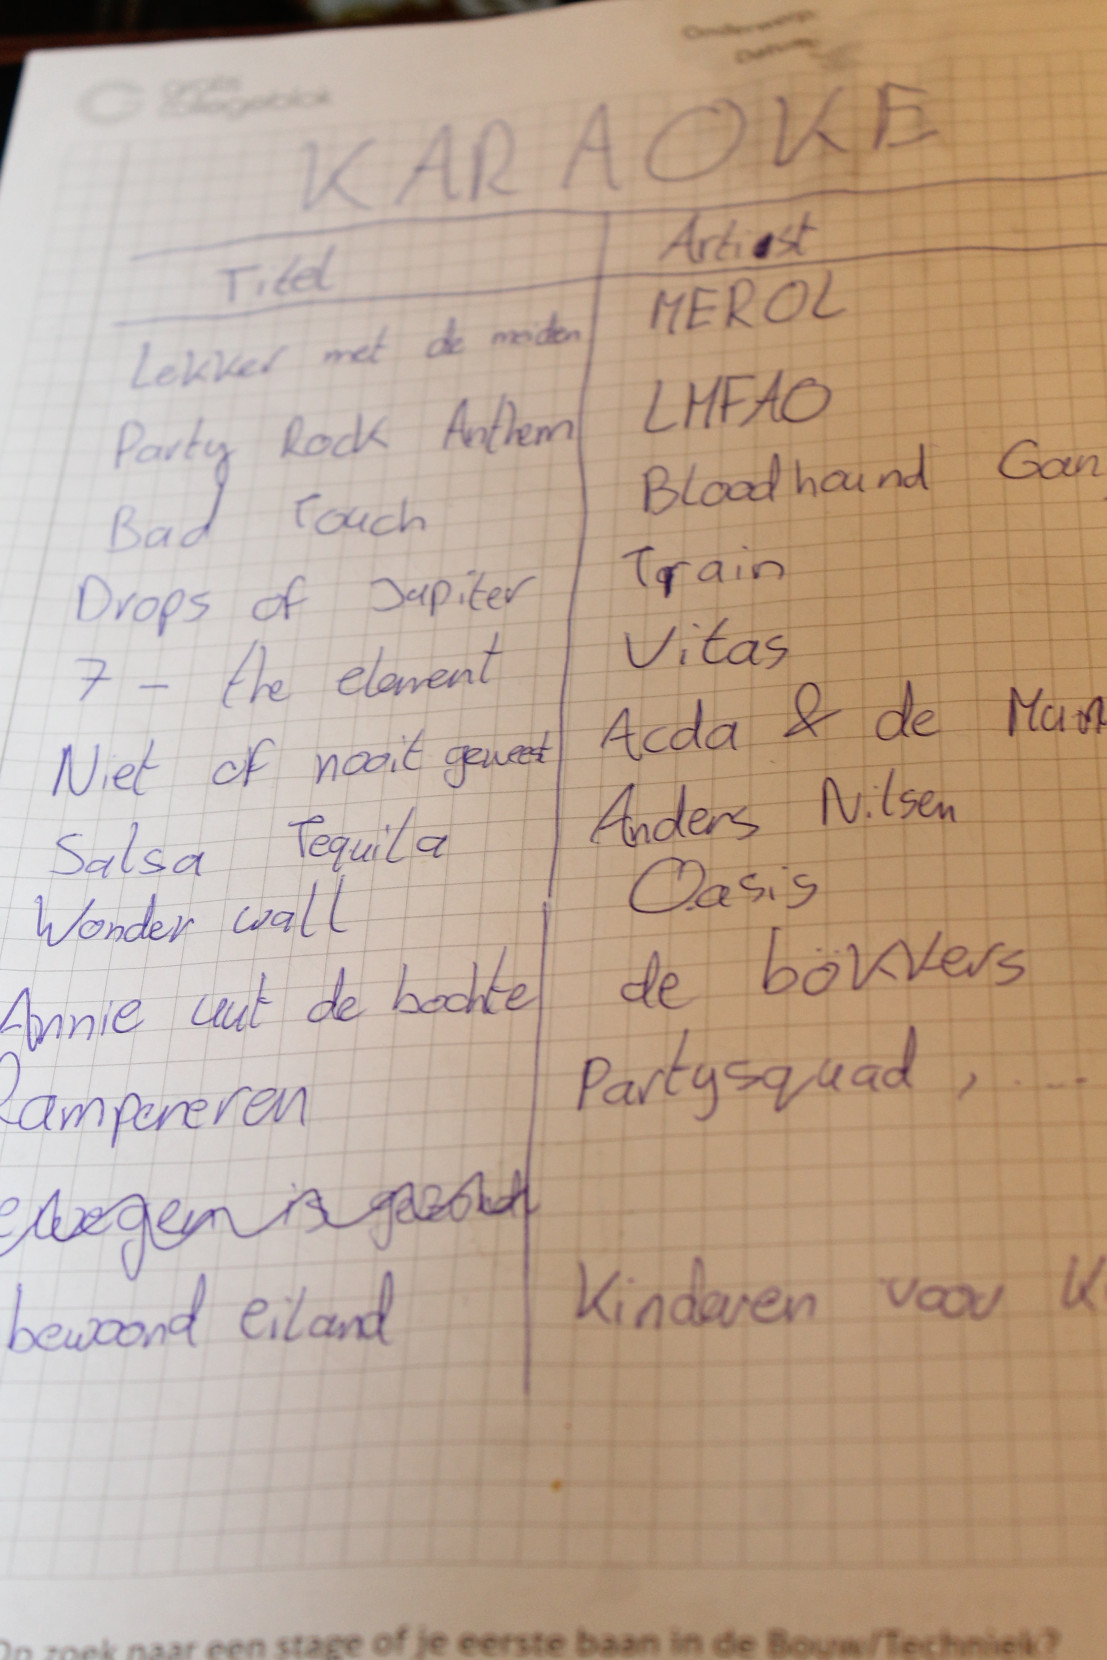 Onderwerp:
Datum:
collegeblok
KARAOKE
Titel Artist
Lekker met de meiden MEROL
Party Rock Anthem LMFAO
Bad Touch Bloodhound Gan
Drops of Jupiter Train
7 - the element Vitas
Niet of nooit geweest Acda & de Mun
Salsa Tequila Anders Nilsen
Wonder wall Oasis
Annie uut de bochte de bökkers
Rampeneren Partysquad, ....
bewoond eiland Kinderen voor K
Op zoek naar een stage of je eerste baan in de Bouw/Techniek?